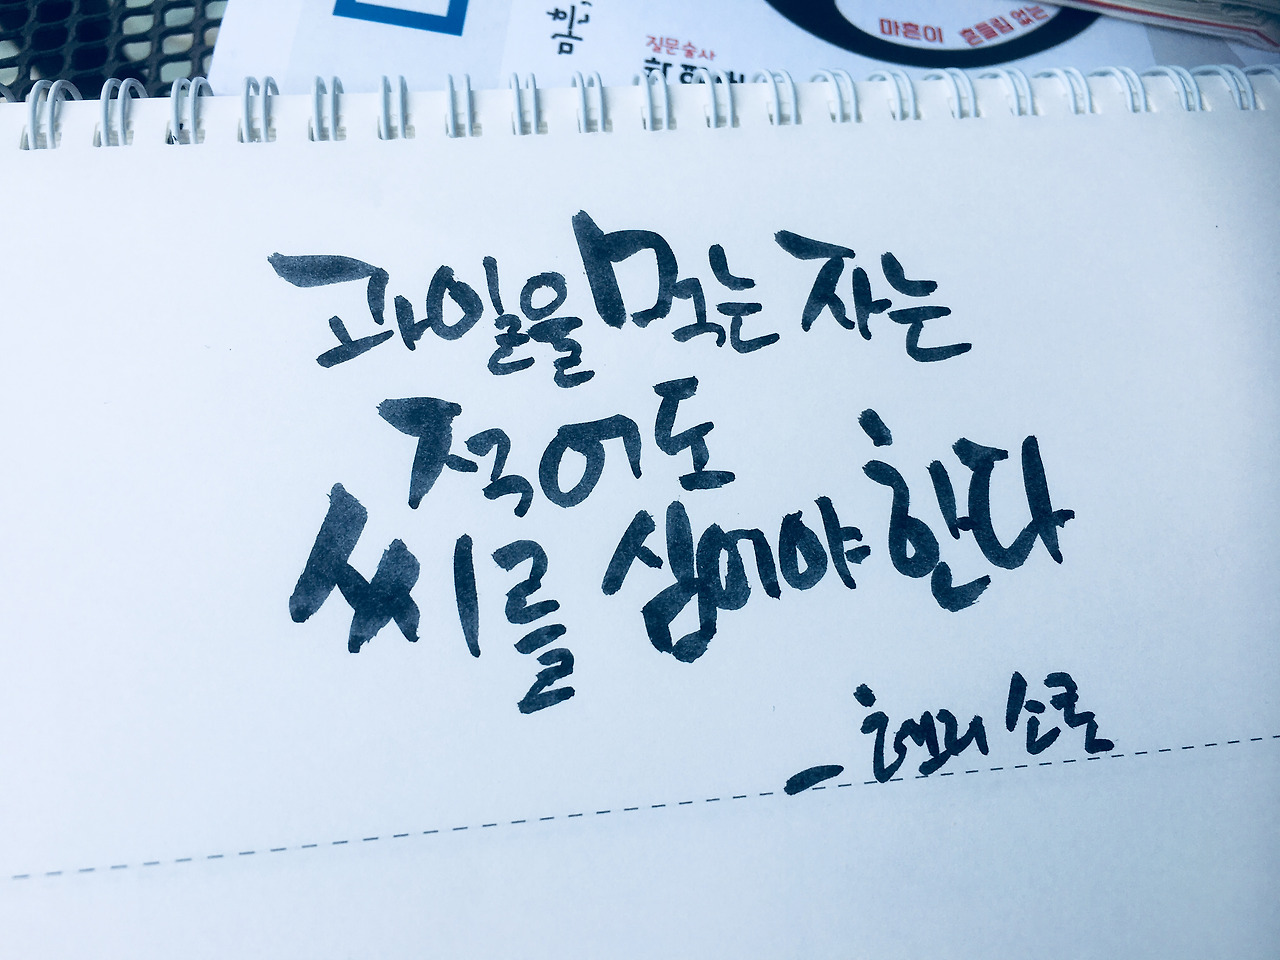 마흔,
마흔이 흔들림 없는
질문술사
과일을 먹는 자는
적어도
씨를 심어야 한다
- 헨리 소로